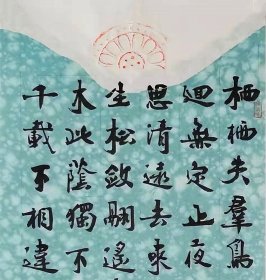 栖栖失羣鳥
迴無定止夜
思清遠去來
生松斂翮遙
木此蔭獨不
千載不相違